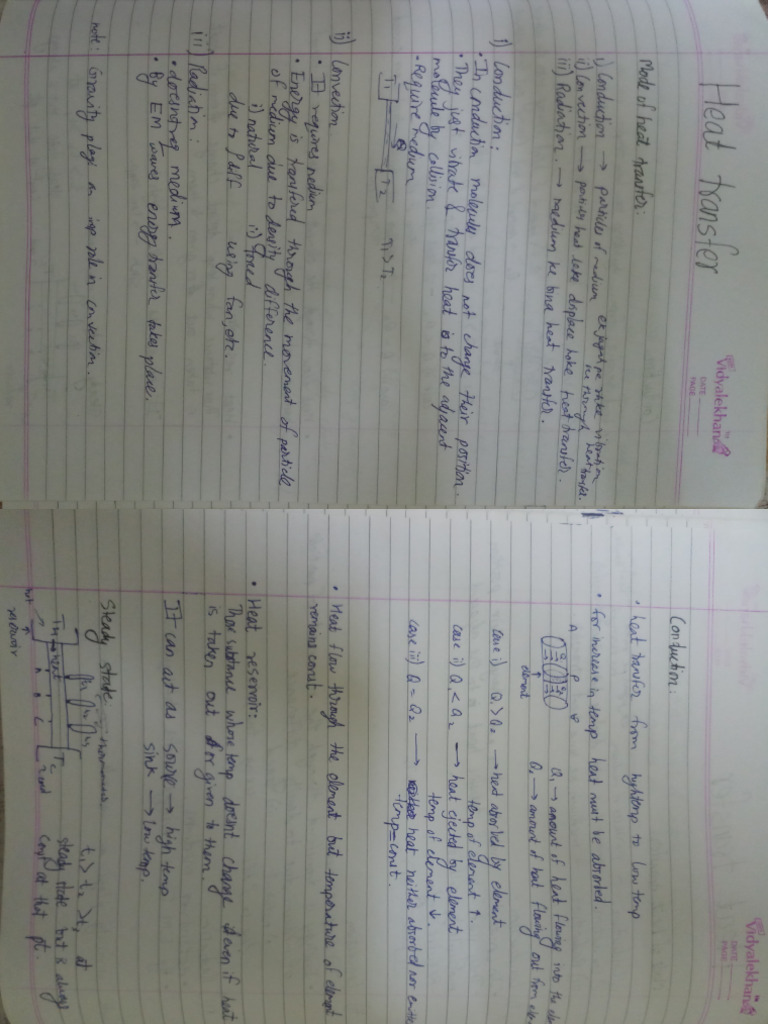 Vidyalekhan
DATE
PAGE
Heat transfer
Mode of heat transfer:
i) Conduction → particles of medium
vibration
through heat transfer.
ii) Convection → displace hoke heat transfer.
iii) Radiation. → medium ke bina heat transfer.
i) Conduction:
• In conduction molecules does not change their position.
• They just vibrate & transfer heat to the adjacent
molecule by collision.
• Require medium
T1 T2 T1 > T2
ii) Convection
• It requires medium
• Energy is transfered through the movement of particle
of medium due to density difference.
i) natural ii) forced
due to ρ diff using fan, etc.
iii) Radiation:
• doesn't req medium.
• By EM waves energy transfer takes place.
note: Gravity plays an imp role in convection.
Vidyalekhan
DATE
PAGE
Conduction:
• heat transfer from high temp to low temp
• for increase in temp heat must be absorbed.
A P
Q1 → amount of heat flowing into the
element
Q2 → amount of heat flowing out from
case i) Q1 > Q2 → heat absorbed by element
temp of element ↑.
case ii) Q1 < Q2 → heat ejected by element
temp of element ↓.
case iii) Q1 = Q2 → heat neither absorbed nor
temp = const.
• Heat flow through the element but temperature of element
remains const.
• Heat reservoir:
substance whose temp doesn't change even if heat
is taken out or given to them.
It can act as source → high temp
sink → low temp.
Steady state
at
steady state but is always
const at that pt.
TH TC
A B C
hot
reservoir